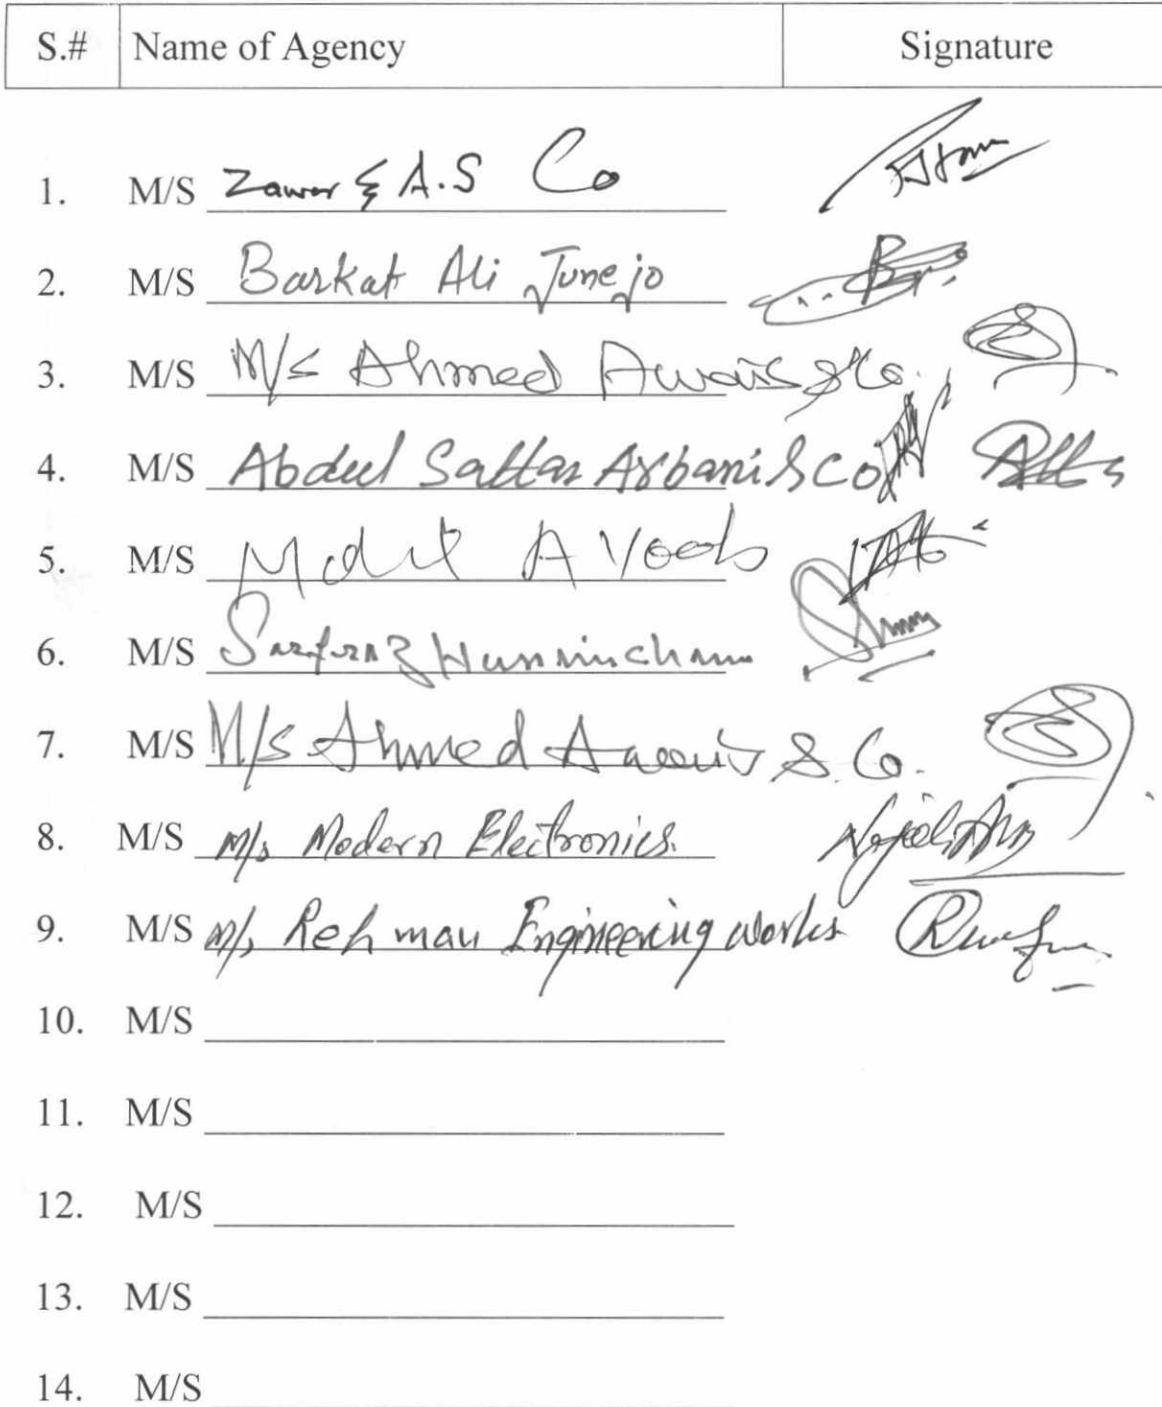 S.# Name of Agency Signature
1. M/S Zawar & A.S Co
2. M/S Barkat Ali Junejo
3. M/S M/S Ahmed Awais & Co.
4. M/S Abdul Sattar Arbani & CO
5. M/S
6. M/S Sarfraz
7. M/S M/S Ahmed Awais & Co.
8. M/S M/s Modern Electronics.
9. M/S M/s Rehman Engineering works
10. M/S
11. M/S
12. M/S
13. M/S
14. M/S